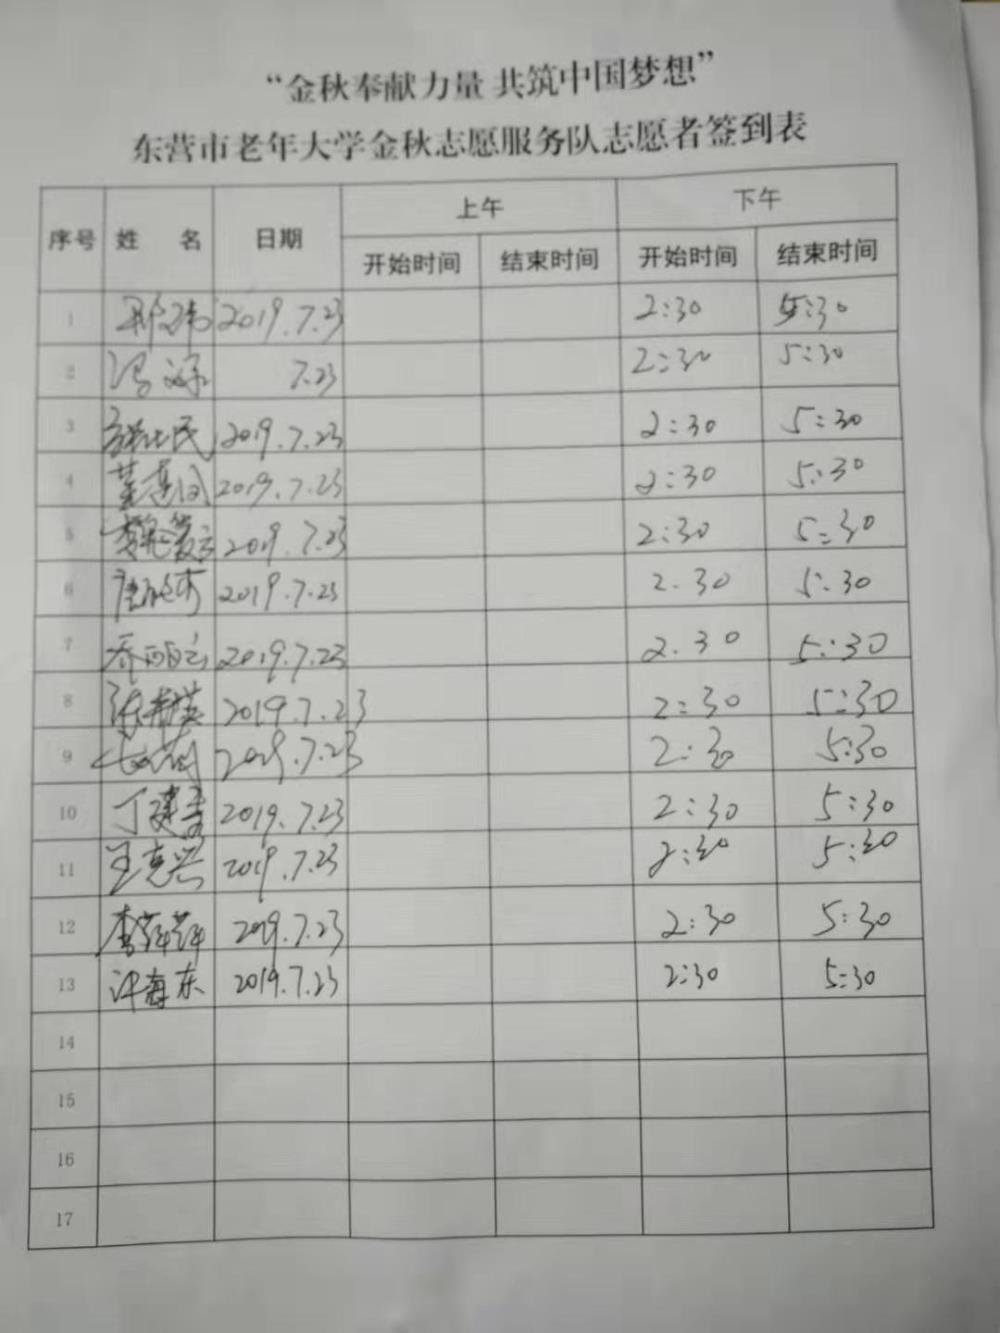 “金秋奉献力量 共筑中国梦想”
东营市老年大学金秋志愿服务队志愿者签到表
序号 姓 名 日期 上午 下午
开始时间 结束时间 开始时间 结束时间
1 2019.7.23 2:30 5:30
2 7.23 2:30 5:30
3 2019.7.23 2:30 5:30
4 2019.7.23 2:30 5:30
5 2019.7.23 2:30 5:30
6 2019.7.23 2.30 5:30
7 乔丽云 2019.7.23 2.30 5:30
8 2019.7.23 2:30 5:30
9 2019.7.23 2:30 5:30
10 2019.7.23 2:30 5:30
11 王克兴 2019.7.23 2:30 5:30
12 李萍萍 2019.7.23 2:30 5:30
13 许海东 2019.7.23 2:30 5:30
14
15
16
17